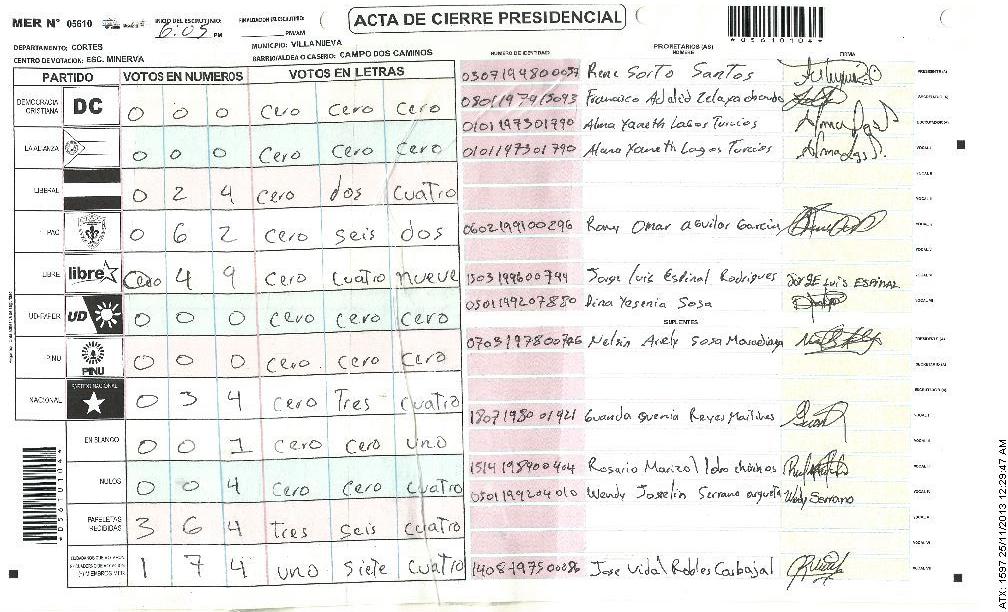 MER N° 05610 INICIO DEL ESCRUTINIO: 6:05 PM FINALIZACION DEL ESCRUTINIO: PM/AM
ACTA DE CIERRE PRESIDENCIAL
*05610104*
DEPARTAMENTO: CORTES MUNICIPIO: VILLANUEVA
CENTRO DE VOTACION: ESC. MINERVA BARRIO/ALDEA O CASERIO: CAMPO DOS CAMINOS
NUMERO DE IDENTIDAD PROPIETARIOS (AS) NOMBRE FIRMA
PARTIDO VOTOS EN NUMEROS VOTOS EN LETRAS
DEMOCRACIA CRISTIANA DC 0 0 0 Cero Cero Cero
LA ALIANZA 0 0 0 Cero Cero Cero
LIBERAL 0 2 4 Cero dos Cuatro
PAC 0 6 2 Cero seis dos
LIBRE libre Cero 4 9 Cero Cuatro nueve
UD-FAPER UD 0 0 0 Cero Cero Cero
PINU PINU 0 0 0 Cero Cero Cero
NACIONAL PARTIDO NACIONAL 0 3 4 Cero Tres Cuatro
EN BLANCO 0 0 1 Cero Cero uno
NULOS 0 0 4 Cero Cero Cuatro
PAPELETAS RECIBIDAS 3 6 4 tres seis cuatro
1 7 4 uno siete cuatro
0507194800057 Rene Sorto Santos PRESIDENTE(A)
Francisco Adalid Zelaya SECRETARIO(A)
0101197301790 Alma Yaneth Lagos Turcios ESCRUTADOR(A)
0101197301790 Alma Yaneth Lagos Turcios VOCAL I
VOCAL II
0602199100296 Rony Omar aguilar Garcia
Jorge luis Espinal Rodrigues JORGE LUIS ESPINAL
0501199207880 Dina Yesenia Sosa
SUPLENTES
Nelsin Arely Sosa PRESIDENTE (A)
SECRETARIO (A)
ESCRUTADOR (A)
1807198001921 Reyes VOCAL I
VOCAL II
1514198900404 Rosario
0501199204010 Wendy Joselin Serrano argueta Wendy Serrano
Jose Vidal Robles Carbajal
*05610104*
ATX: 1597 25/11/2013 12:29:47 AM